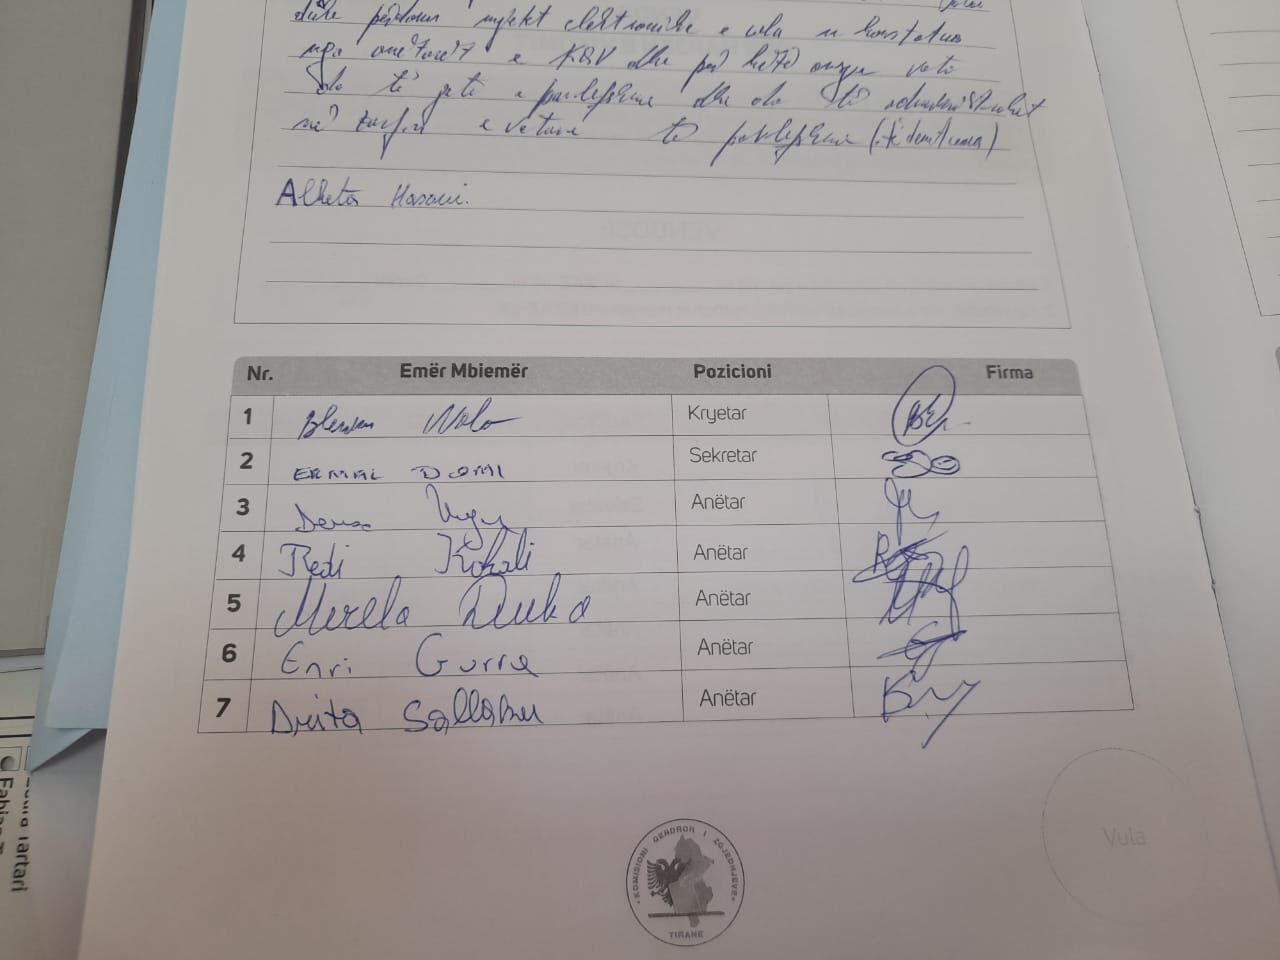 duke përdorur mjetet elektronike e cila u konstatua
nga anëtarët e KQV dhe për këtë arsye vota
do të jetë e pavlefshme dhe do të administrohet
në zarfin e votave të pavlefshme
Alketa Hasani.
Nr. Emër Mbiemër Pozicioni Firma
1 Kryetar
2 ERMAL Sekretar
3 Anëtar
4 Redi Kokali Anëtar
5 Mirela Duka Anëtar
6 Enri Gurra Anëtar
7 Drita Sallaku Anëtar
KOMISIONI QENDROR I ZGJEDHJEVE
TIRANE
Vula
Tartari